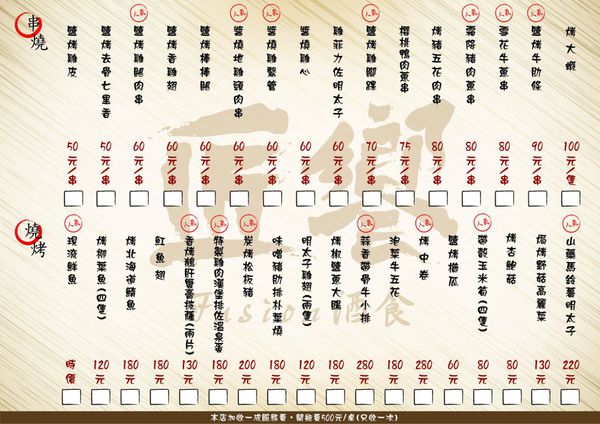 串燒
鹽烤雞皮 50元/串
鹽烤去骨七里香 50元/串
人氣 鹽烤雞腿肉串 60元/串
鹽烤香雞翅 60元/串
鹽烤棒棒腿 60元/串
人氣 醬燒地雞頸肉串 60元/串
人氣 醬燒雞繫管 60元/串
醬燒雞心 60元/串
雞菲力佐明太子 60元/串
人氣 鹽烤雞腳踝 70元/串
櫻桃鴨肉蔥串 75元/串
烤豬五花肉串 80元/串
人氣 豬肉蔥串 80元/串
人氣 雪花牛蔥串 80元/串
人氣 鹽烤牛肋條 90元/串
烤大蝦 100元/隻
燒烤
人氣 現流鮮魚 時價
烤柳葉魚(四隻) 120元
烤北海道鯖魚 180元
魟魚翅 180元
人氣 香烤鵝肝醬膏披薩(兩片) 130元
人氣 特製雞肉漢堡排佐溫泉蛋 180元
人氣 炭烤松板豬 200元
味噌豬肋排朴葉燒 180元
明太子雞翅(兩隻) 120元
烤椒鹽蔥大腸 180元
人氣 蒜香帶骨牛小排 280元
泡菜牛五花 180元
烤中卷 280元
鹽烤櫛瓜 60元
人氣 帶殼玉米筍(四隻) 80元
烤杏鮑菇 80元
焗烤野菇高麗菜 130元
人氣 山藥馬鈴薯明太子 220元
Fusion 酒食
本店加收一成服務費・開瓶費500元/桌(只收一次)